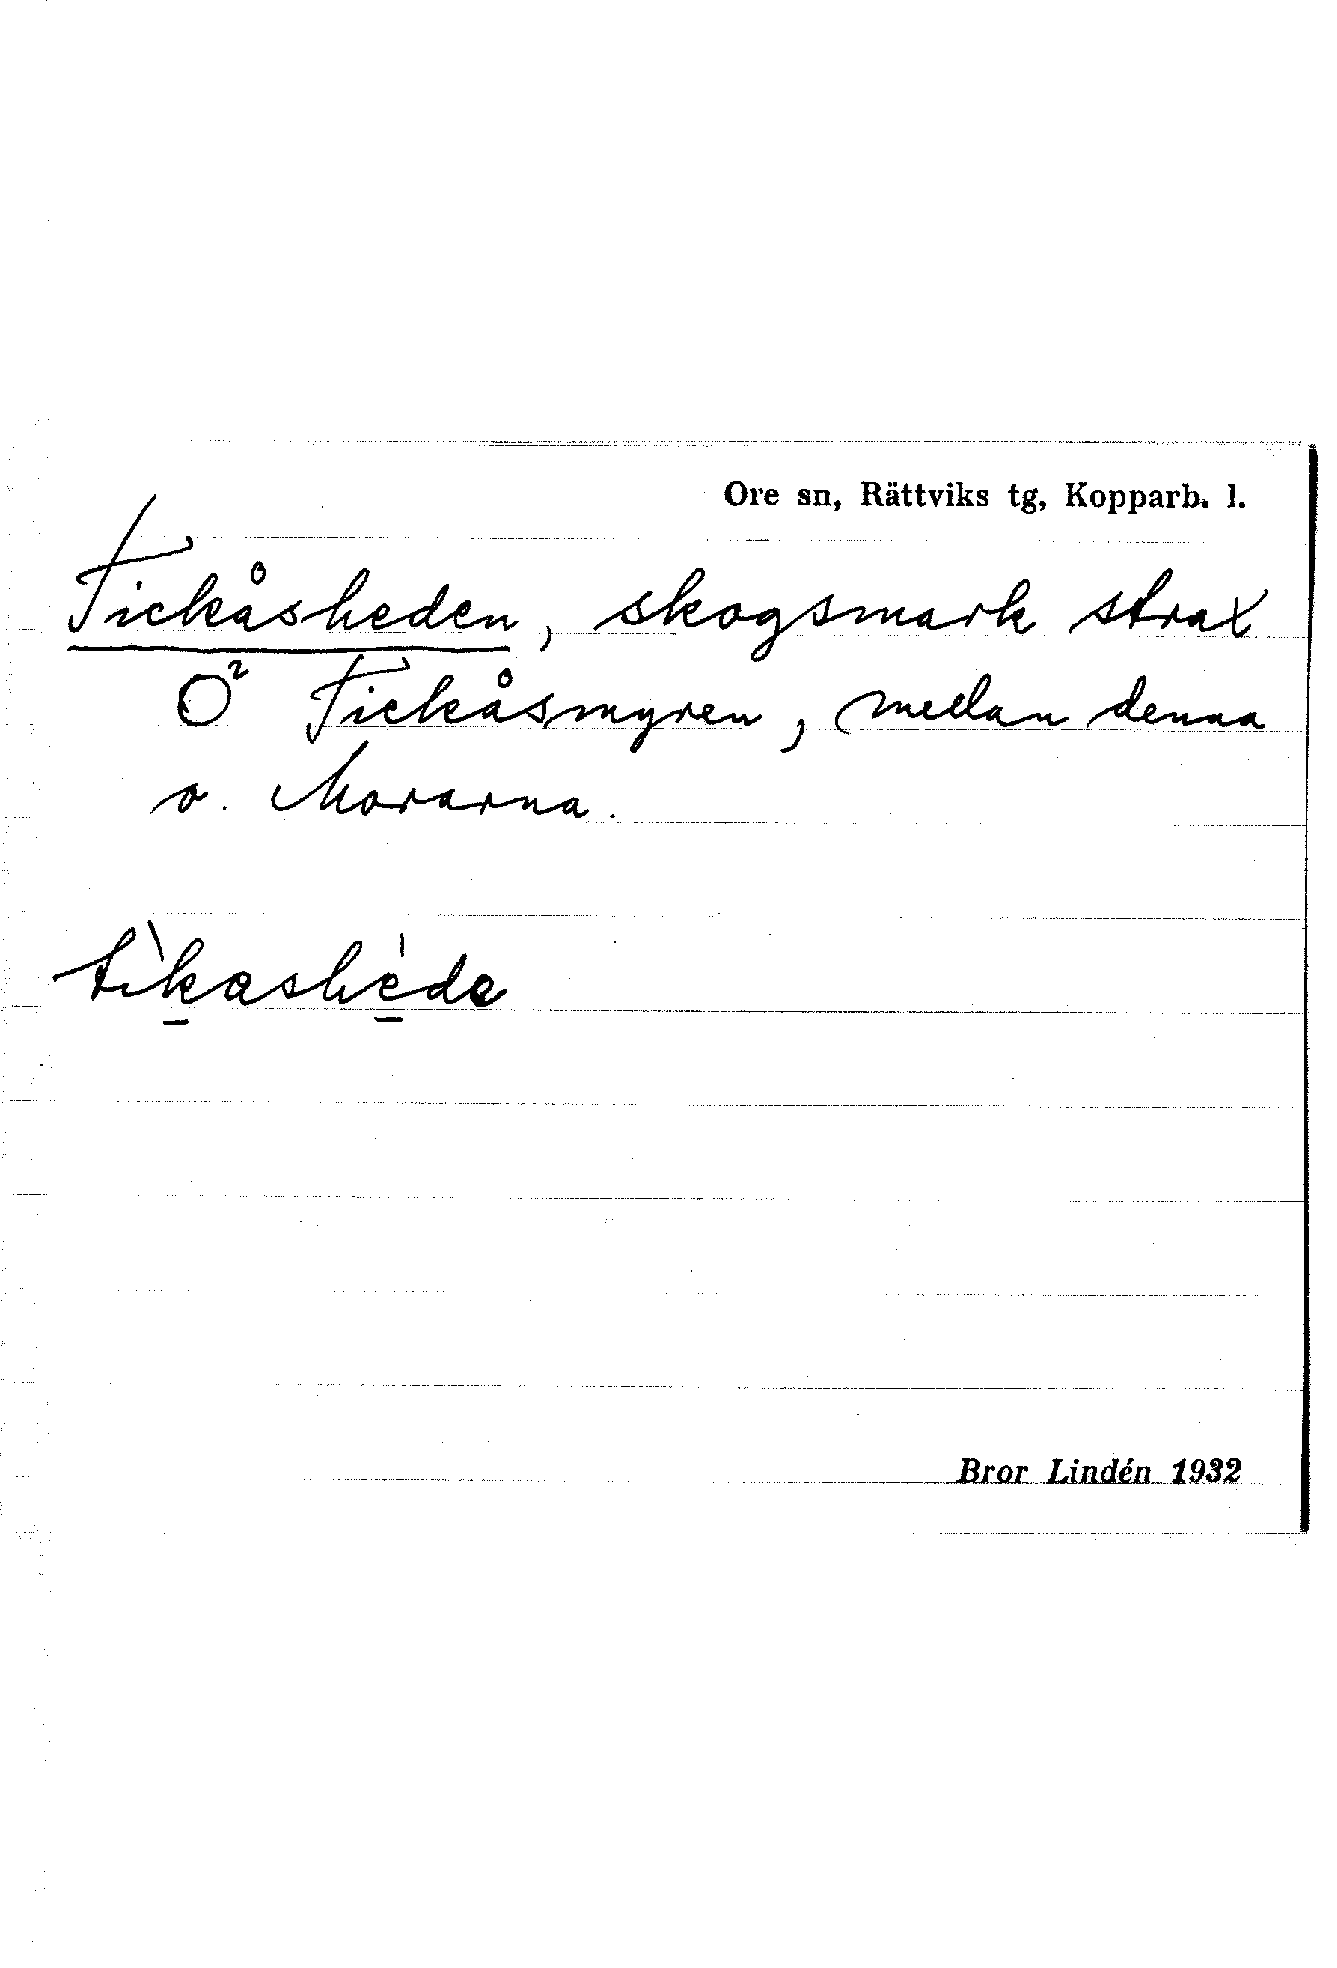 Ore sn, Rättviks tg, Kopparb. l.
Tickåsheden, skogsmark strax
O² Tickåsmyren, mellan denna
o. Morarna.
tìkashéda
Bror Lindén 1932